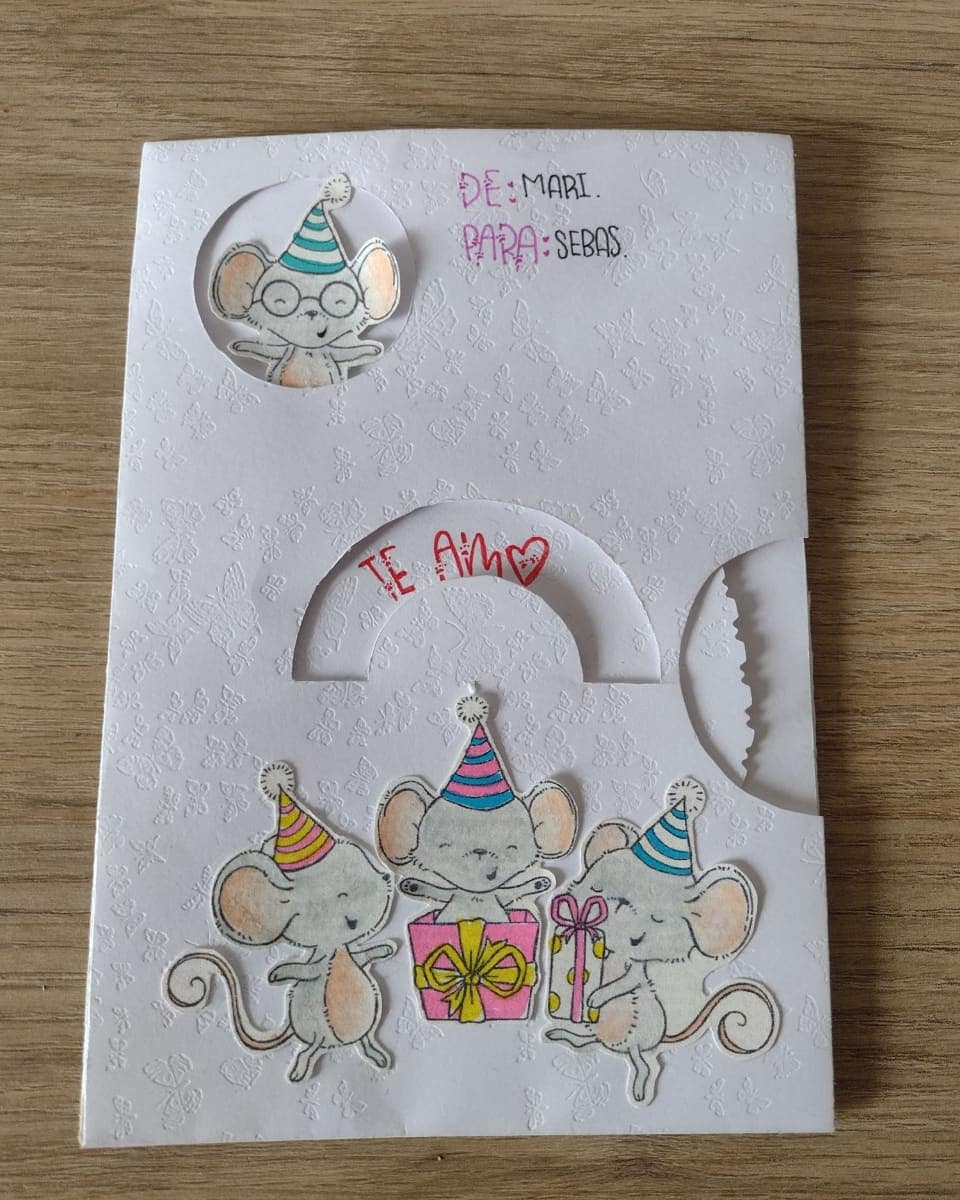 DE: MARI.
PARA: SEBAS.
TE AM♡